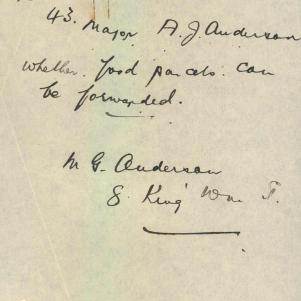 43. Major A. J. Anderson
whether food parcels can
be forwarded.
M G. Anderson
8 King Wm St.